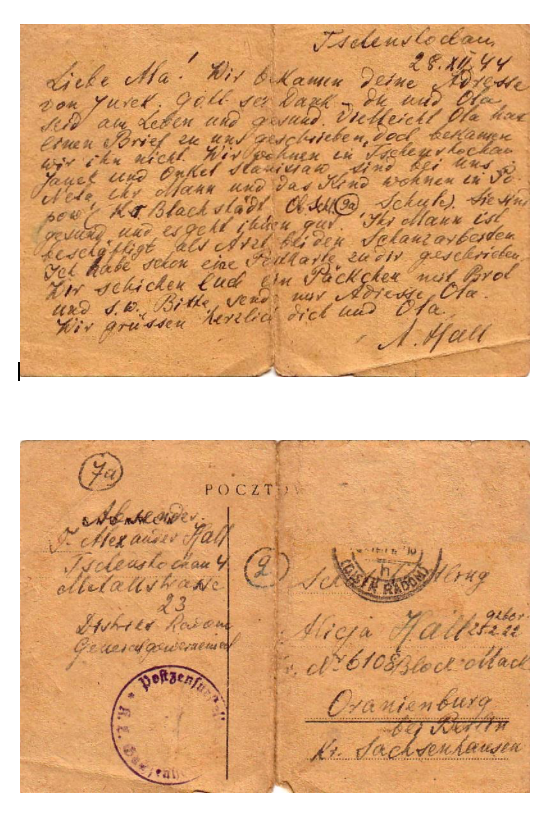 Tschenstochau
28.XII.44
Liebe Ala! Wir bekamen deine Adresse
von Jurek. Gott sei Dank du und Ola
seid am Leben und gesund. Vielleicht Ola hat
einen Brief zu uns geschrieben, doch bekamen
wir ihn nicht. Wir wohnen in Tschenstochau
und Onkel Stanislaw sind bei uns.
ihr Mann und das Kind wohnen in Po-
pow Kr. Blachstädt (9a) Schule). Sie sind
gesund und es geht ihnen gut. Ihr Mann ist
beschäftigt als Arzt bei den Schanzarbeiten.
Ich habe schon eine Postkarte zu dir geschrieben.
Wir schicken Euch ein Päckchen mit Brot
und s.w. Bitte send nur Adresse Ola.
Wir grüssen herzlich dich und Ola.
A. Hall
7a
POCZTOW
Absender.
F. Alexander Hall
Tschenstochau 4
Metallstrasse
23
Distrikt Radom
Generalgouvernement
2
(DISTR. RADOM)
Postzensur
Alicja Hall
gebor.
25.2.22
Nr 6108 Block
Oranienburg
bei Berlin
Kr. Sachsenhausen